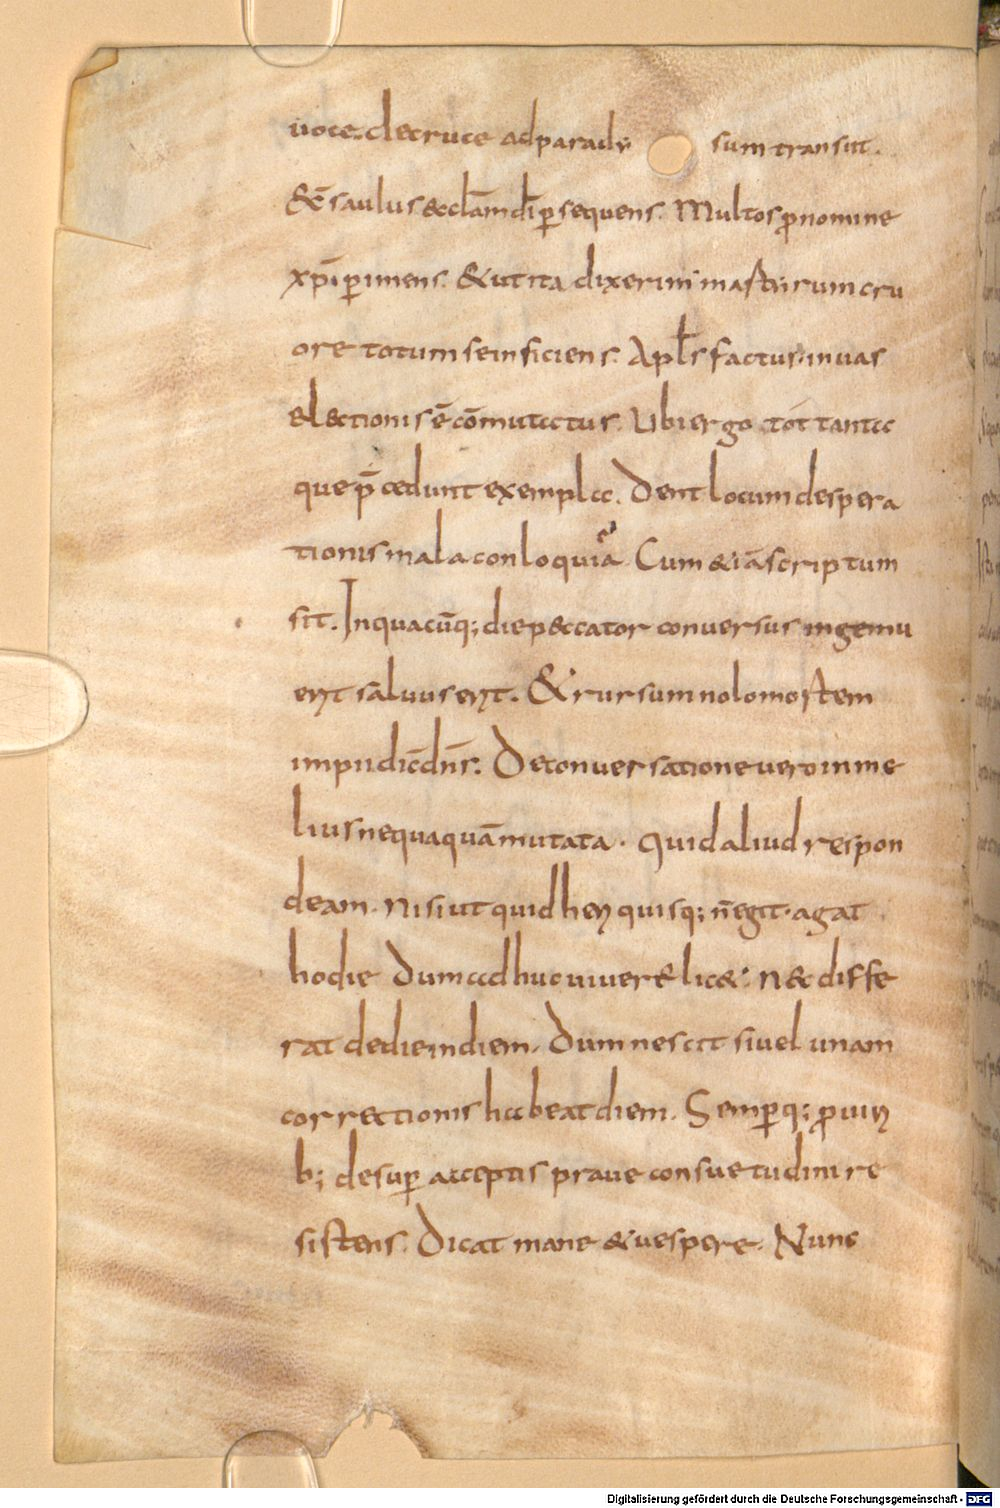 uoce. de cruce ad paradi sum transiit.
& s̄ saulus ecclām dī p̲sequens. Multos ꝓ nomine
xp̄i p̲imens. & ut ita dixerim martirum cru
ore totum se inficiens. Apl̄s factus in uas
electionis ē cōmutatus. Ubi ergo tot tanta
que p̄cedunt exempla. Dent locum despera
tionis mala conloquia. Cum & iā scriptum
sit. In quacūq; die peccator conuersus ingemu
erit saluus erit. & rursum nolo mortem
impii dic̄ dn̄s. De conuersatione uero in me
lius nequaquā mutata. Quid aliud respon
deam. Nisi ut quid heri quisq; n̄ egit. agat
hodie dum adhuc uiuere lic&. Nec diffe
rat de die in diem. Dum nescit si uel unam
correctionis habeat diem. Semp̲q; ꝓ uiri
b; desup̲ acceptis praue consuetudini re
sistens. Dicat mane & uespere. Nunc
Digitalisierung gefördert durch die Deutsche Forschungsgemeinschaft - DFG